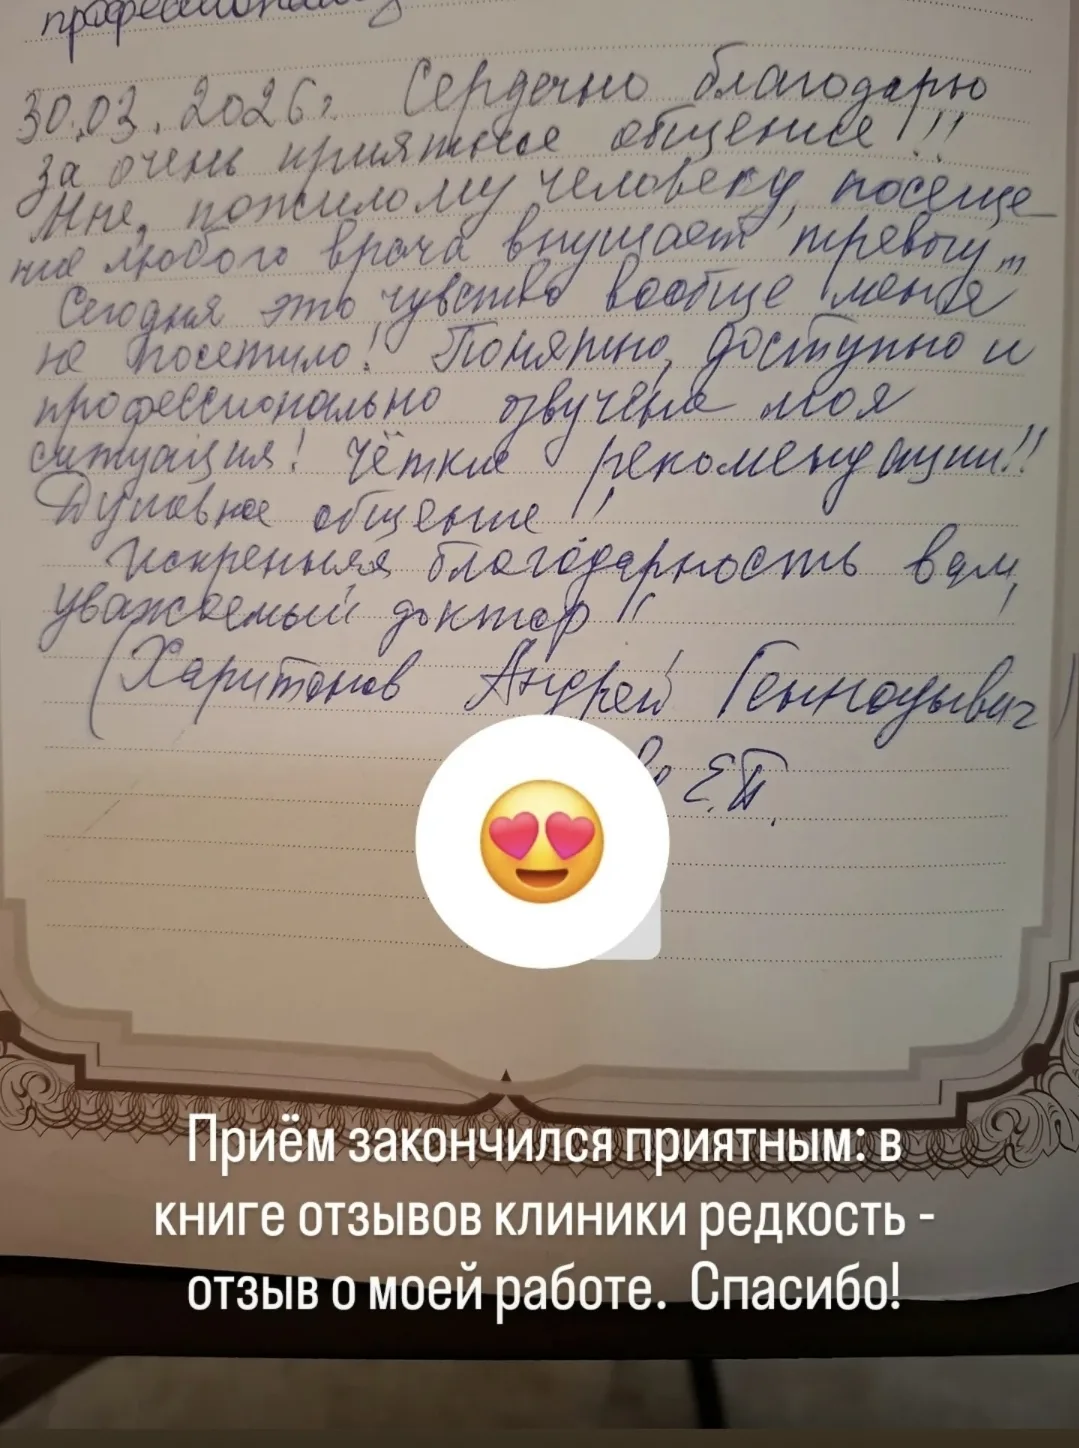 профессионализ
30.03.2026г. Сердечно благодарю
за очень приятное общение!!!
Мне, пожилому человеку, посеще-
ние любого врача внушает тревогу...
Сегодня это чувство вообще меня
не посетило! Понятно, доступно и
профессионально озвучена моя
ситуация! Чёткие рекомендации!!
Душевное общение!!
Искренняя благодарность вам,
уважаемый доктор!!!
(Харитонов Андрей Геннадьевич)
Е.П.
Приём закончился приятным: в
книге отзывов клиники редкость -
отзыв о моей работе. Спасибо!